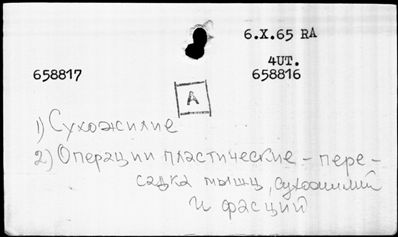 6.X.65 RA
4UT.
658817 658816
A
1) Сухожилие
2) Операции пластические - пере-
садка мышц, сухожилий
и фасций